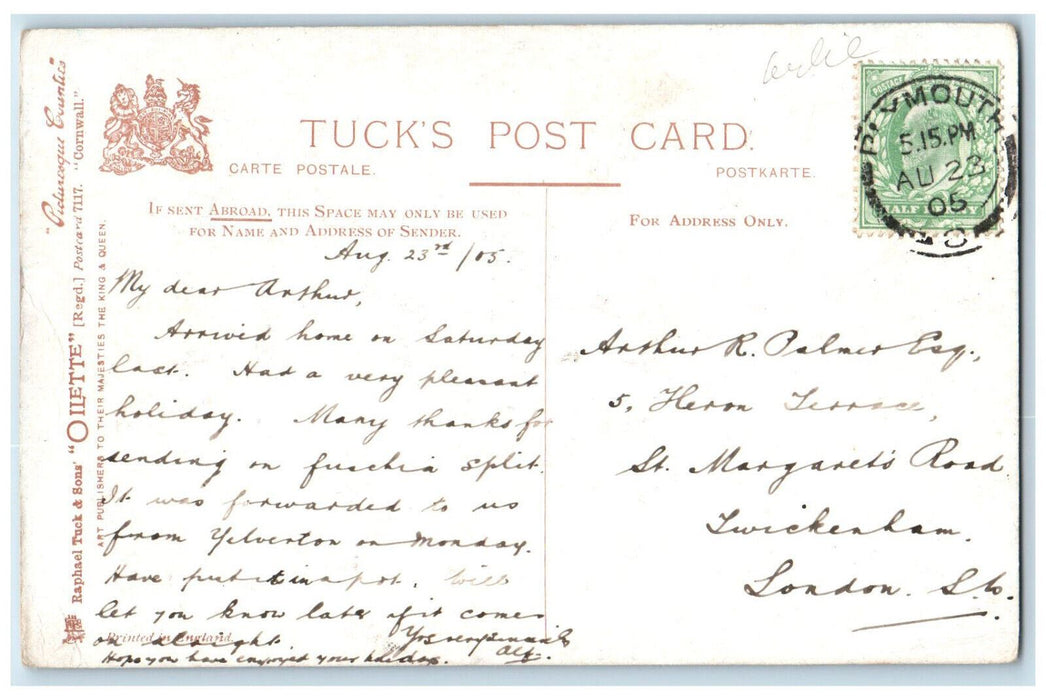 "Picturesque Counties"
Raphael Tuck & Sons' "OILETTE" [Regd.] Postcard 7117. "Cornwall."
ART PUBLISHERS TO THEIR MAJESTIES THE KING & QUEEN.
TUCK'S POST CARD.
CARTE POSTALE.
POSTKARTE.
IF SENT ABROAD, THIS SPACE MAY ONLY BE USED
FOR NAME AND ADDRESS OF SENDER.
FOR ADDRESS ONLY.
POSTAGE
HALF PENNY
PLYMOUTH
5.15.PM
AU 23
05
8
Aug. 23rd/05.
My dear Arthur,
Arrived home on Saturday
last. Had a very pleasant
holiday. Many thanks for
sending on fuschia split.
It was forwarded to us
from Yelverton on Monday.
Have put it in a pot. Will
let you know later if it comes
on alright.
Yrs very sincerely
Alf.
Hope you have enjoyed your holiday.
Printed in England.
Arthur R. Palmer Esq.,
5, Heron Terrace,
St. Margaret's Road
Twickenham.
London. S.W.